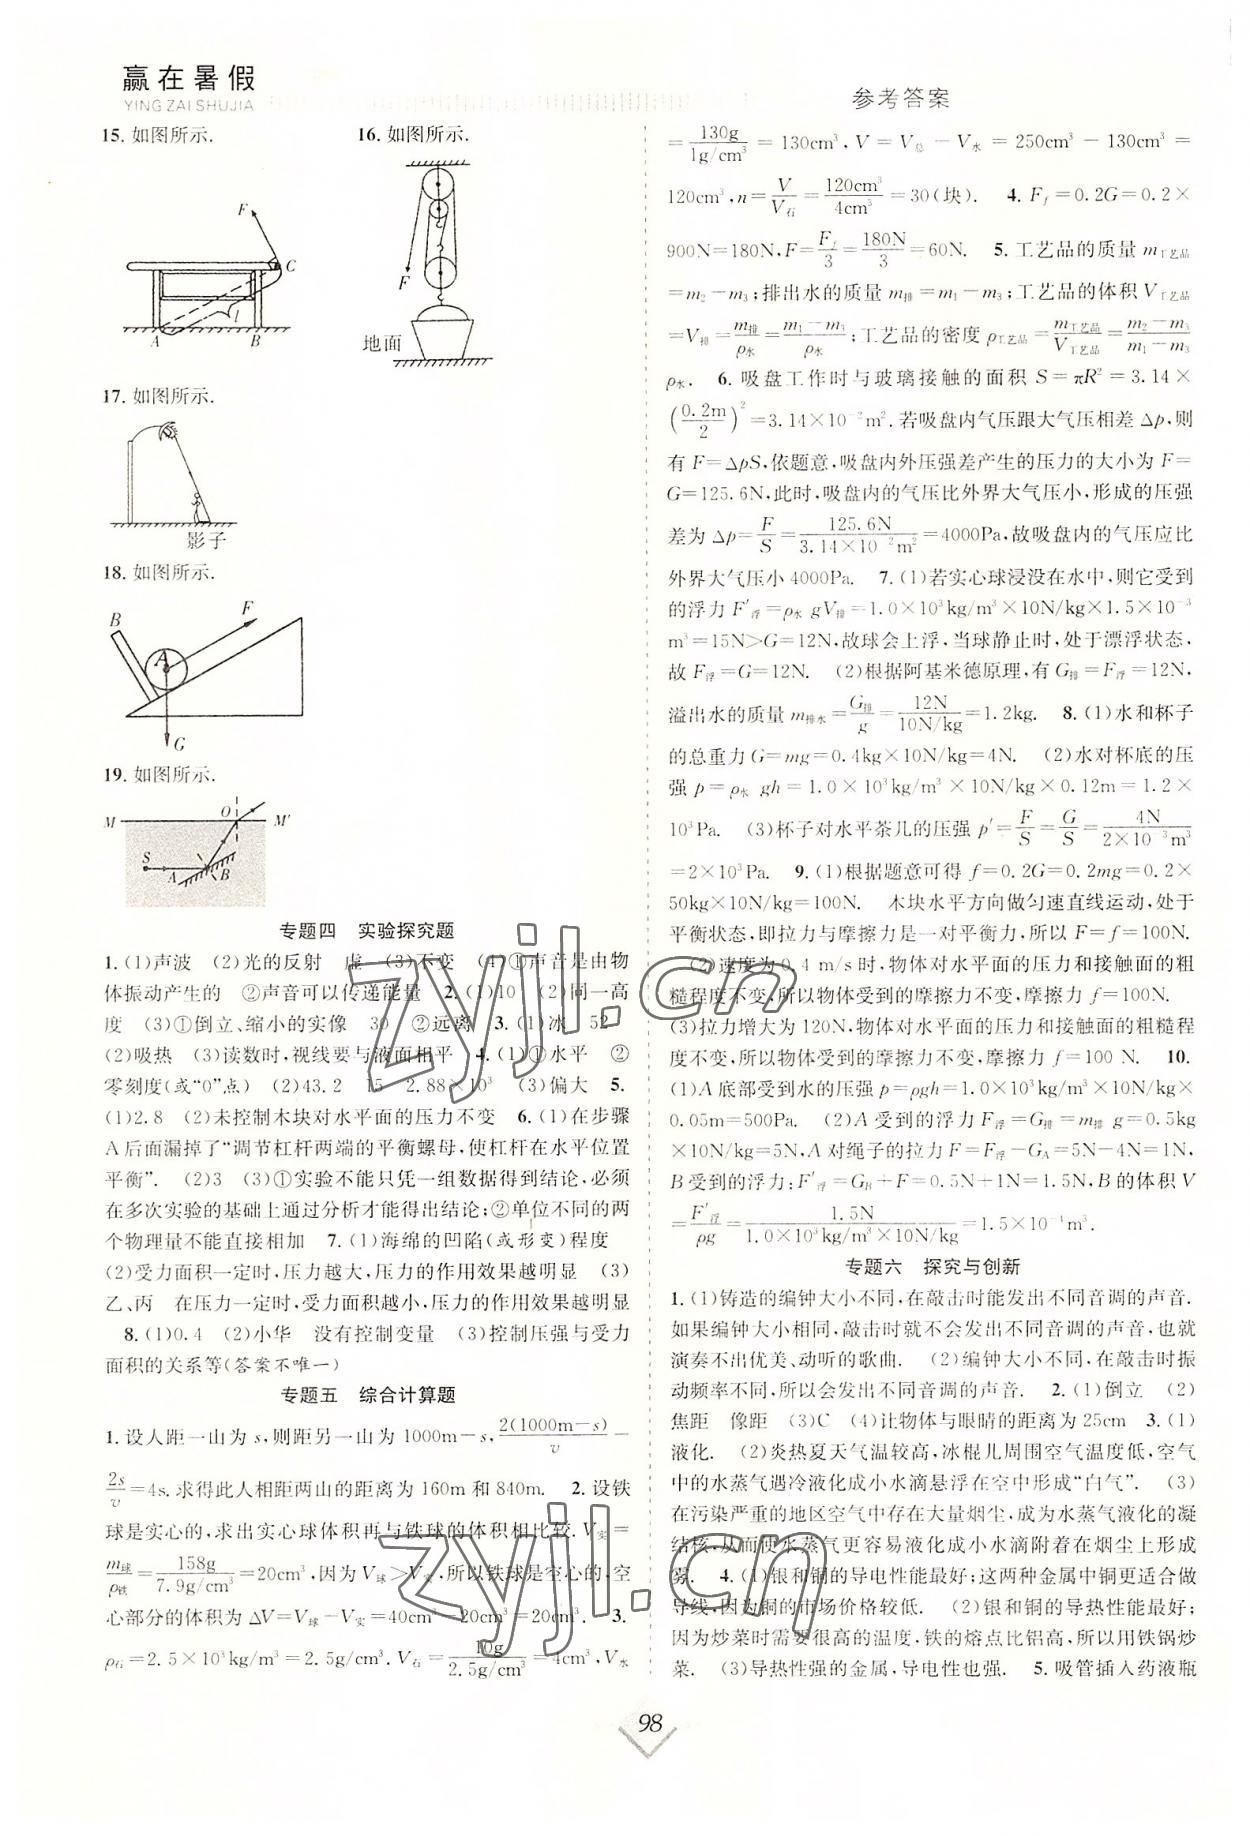 赢在暑假
YING ZAI SHUJIA
参考答案
15. 如图所示.
16. 如图所示.
F
C
l
A
B
F
地面
17. 如图所示.
影子
18. 如图所示.
B
F
A
G
19. 如图所示.
O
M
M′
S
A
B
专题四 实验探究题
1. (1)声波 (2)光的反射 虚 (3)不变 (4)①声音是由物
体振动产生的 ②声音可以传递能量 2. (1)10 (2)同一高
度 (3)①倒立、缩小的实像 30 ②远离 3. (1)冰 52
(2)吸热 (3)读数时,视线要与液面相平 4. (1)①水平 ②
零刻度(或“0”点) (2)43.2 15 2.88×10³ (3)偏大 5.
(1)2.8 (2)未控制木块对水平面的压力不变 6. (1)在步骤
A后面漏掉了“调节杠杆两端的平衡螺母,使杠杆在水平位置
平衡”. (2)3 (3)①实验不能只凭一组数据得到结论,必须
在多次实验的基础上通过分析才能得出结论;②单位不同的两
个物理量不能直接相加 7. (1)海绵的凹陷(或形变)程度
(2)受力面积一定时,压力越大,压力的作用效果越明显 (3)
乙、丙 在压力一定时,受力面积越小,压力的作用效果越明显
8. (1)0.4 (2)小华 没有控制变量 (3)控制压强与受力
面积的关系等(答案不唯一)
专题五 综合计算题
1. 设人距一山为 s,则距另一山为 1000m－s, 2(1000m－s)/v －
2s/v ＝4s. 求得此人相距两山的距离为 160m 和 840m. 2. 设铁
球是实心的,求出实心球体积再与铁球的体积相比较. V实＝
m球/ρ铁＝158g/7.9g/cm³＝20cm³,因为 V球＞V实,所以铁球是空心的,空
心部分的体积为 ΔV＝V球－V实＝40cm³－20cm³＝20cm³. 3.
ρ石＝2.5×10³kg/m³＝2.5g/cm³. V石＝10g/2.5g/cm³＝4cm³,V水
＝130g/1g/cm³＝130cm³,V＝V总－V水＝250cm³－130cm³＝
120cm³,n＝V/V石＝120cm³/4cm³＝30(块). 4. Ff＝0.2G＝0.2×
900N＝180N,F＝Ff/3＝180N/3＝60N. 5. 工艺品的质量 m工艺品
＝m₂－m₃;排出水的质量 m排＝m₁－m₃;工艺品的体积 V工艺品
＝V排＝m排/ρ水＝m₁－m₃/ρ水;工艺品的密度 ρ工艺品＝m工艺品/V工艺品＝m₂－m₃/m₁－m₃
ρ水. 6. 吸盘工作时与玻璃接触的面积 S＝πR²＝3.14×
(0.2m/2)²＝3.14×10⁻²m². 若吸盘内气压跟大气压相差 Δp,则
有 F＝ΔpS,依题意,吸盘内外压强差产生的压力的大小为 F＝
G＝125.6N,此时,吸盘内的气压比外界大气压小,形成的压强
差为 Δp＝F/S＝125.6N/3.14×10⁻²m²＝4000Pa,故吸盘内的气压应比
外界大气压小 4000Pa. 7. (1)若实心球浸没在水中,则它受到
的浮力 F′浮＝ρ水gV排＝1.0×10³kg/m³×10N/kg×1.5×10⁻³
m³＝15N＞G＝12N,故球会上浮,当球静止时,处于漂浮状态,
故 F浮＝G＝12N. (2)根据阿基米德原理,有 G排＝F浮＝12N,
溢出水的质量 m排水＝G排/g＝12N/10N/kg＝1.2kg. 8. (1)水和杯子
的总重力 G＝mg＝0.4kg×10N/kg＝4N. (2)水对杯底的压
强 p＝ρ水gh＝1.0×10³kg/m³×10N/kg×0.12m＝1.2×
10³Pa. (3)杯子对水平茶几的压强 p′＝F/S＝G/S＝4N/2×10⁻³m³
＝2×10³Pa. 9. (1)根据题意可得 f＝0.2G＝0.2mg＝0.2×
50kg×10N/kg＝100N. 木块水平方向做匀速直线运动,处于
平衡状态,即拉力与摩擦力是一对平衡力,所以 F＝f＝100N.
(2)速度为 0.4 m/s 时,物体对水平面的压力和接触面的粗
糙程度不变,所以物体受到的摩擦力不变,摩擦力 f＝100N.
(3)拉力增大为 120N,物体对水平面的压力和接触面的粗糙程
度不变,所以物体受到的摩擦力不变,摩擦力 f＝100 N. 10.
(1)A 底部受到水的压强 p＝ρgh＝1.0×10³kg/m³×10N/kg×
0.05m＝500Pa. (2)A 受到的浮力 F浮＝G排＝m排g＝0.5kg
×10N/kg＝5N,A 对绳子的拉力 F＝F浮－GA＝5N－4N＝1N,
B 受到的浮力:F′浮＝GB＋F＝0.5N＋1N＝1.5N,B 的体积 V
＝F′浮/ρg＝1.5N/1.0×10³kg/m³×10N/kg＝1.5×10⁻⁴m³.
专题六 探究与创新
1. (1)铸造的编钟大小不同,在敲击时能发出不同音调的声音.
如果编钟大小相同,敲击时就不会发出不同音调的声音,也就
演奏不出优美、动听的歌曲. (2)编钟大小不同,在敲击时振
动频率不同,所以会发出不同音调的声音. 2. (1)倒立 (2)
焦距 像距 (3)C (4)让物体与眼睛的距离为 25cm 3. (1)
液化. (2)炎热夏天气温较高,冰棍儿周围空气温度低,空气
中的水蒸气遇冷液化成小水滴悬浮在空中形成“白气”. (3)
在污染严重的地区空气中存在大量烟尘,成为水蒸气液化的凝
结核,从而使水蒸气更容易液化成小水滴附着在烟尘上形成
雾. 4. (1)银和铜的导电性能最好;这两种金属中铜更适合做
导线,因为铜的市场价格较低. (2)银和铜的导热性能最好;
因为炒菜时需要很高的温度,铁的熔点比铝高,所以用铁锅炒
菜. (3)导热性强的金属,导电性也强. 5. 吸管插入药液瓶
98
zyjl.cn
zyjl.cn